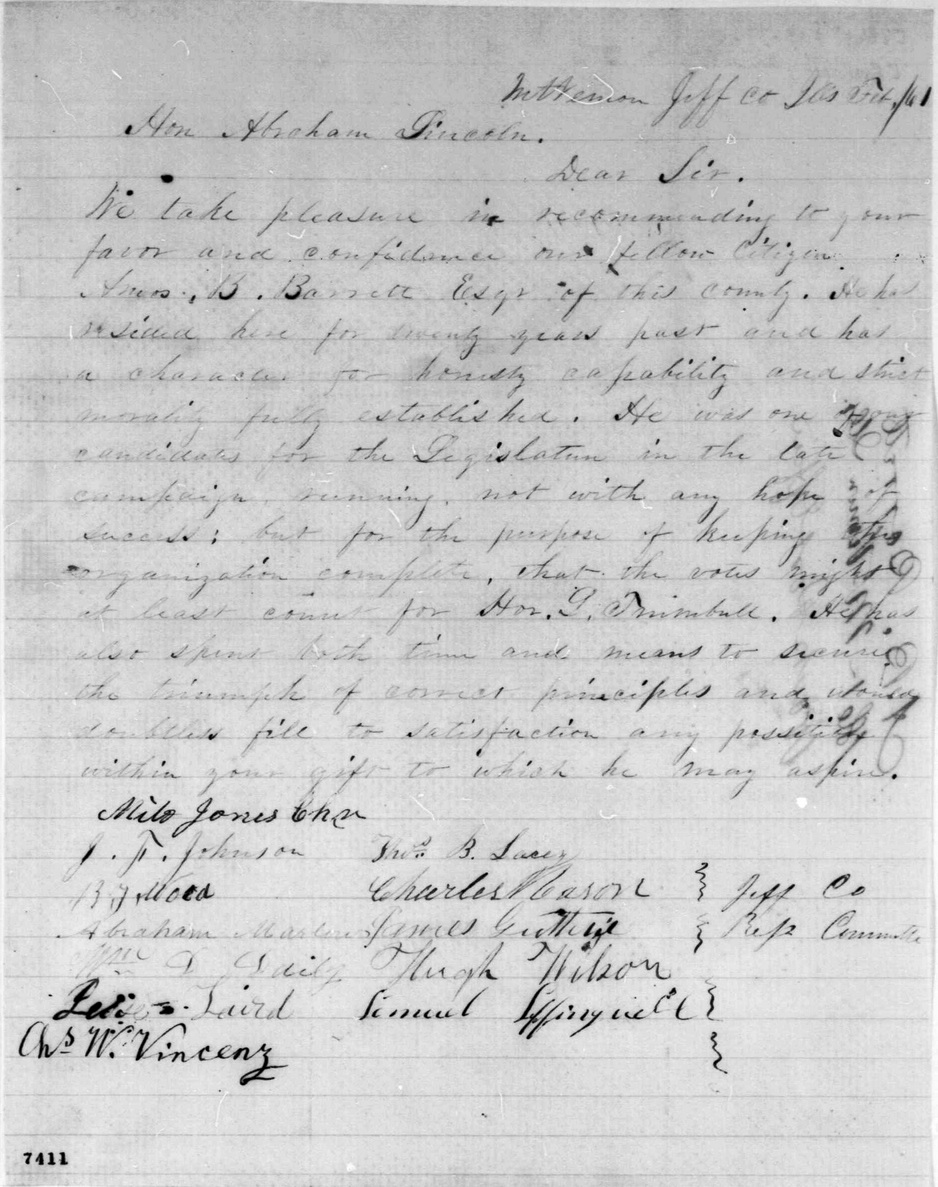 Mt Vernon Jeff Co Ills Feb./61
Hon Abraham Lincoln.
Dear Sir.
We take pleasure in recommending to your
favor and confidence our fellow Citizen
Amos. B. Barrett Esqr of this county. He has
resided here for twenty years past and has
a character for honesty capability and strict
morality fully established. He was one of our
candidates for the Legislature in the late
campaign, running, not with any hope of
success; but for the purpose of keeping the
organization complete, that the votes might
at least count for Hon. L. Trumbull. He has
also spent both time and means to secure
the triumph of correct principles and would
doubtless fill to satisfaction any position
within your gift to which he may aspire.
Milo Jones Chn
J. F. Johnson Thos. B. Lacey
Wood Charles Mason Jeff Co
Abraham Marlow James Guthrie Rep Committe
Wm D Daily Hugh Wilson
Laird Lemuel Effingwell
Chs W. Vincenz
7411